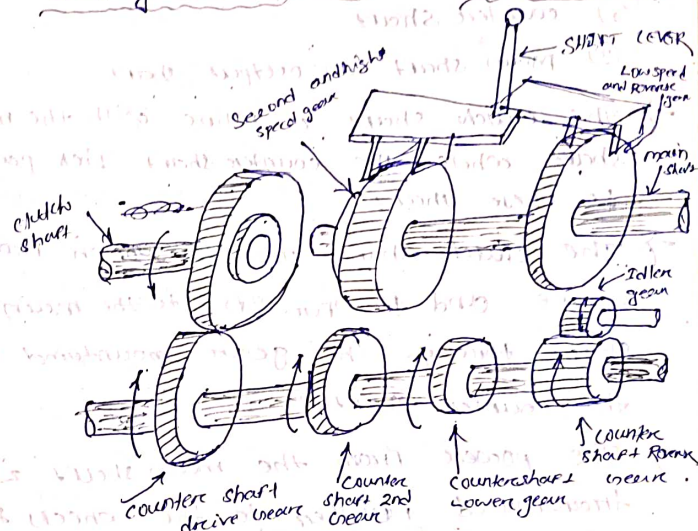 SHIFT LEVER
Low speed
and Reverse
gear
Second and high
speed gear
main
shaft
clutch
shaft
Idler
gear
counter
shaft Reverse
Gear.
counter shaft
drive Gear
counter
shaft 2nd
Gear
countershaft
Lower gear